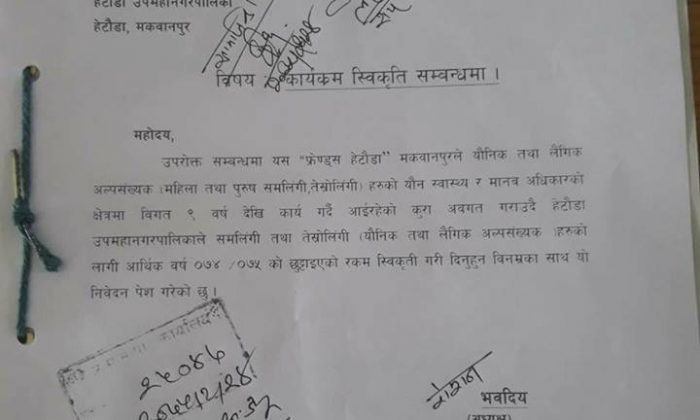 हेटौंडा उपमहानगरपालिका
हेटौंडा, मकवानपुर
विषय : कार्यक्रम स्विकृति सम्बन्धमा ।
महोदय,
उपरोक्त सम्बन्धमा यस "फ्रेण्ड्स हेटौडा" मकवानपुरले यौनिक तथा लैंगिक
अल्पसंख्यक (महिला तथा पुरुष समलिंगी,तेस्रोलिंगी) हरुको यौन स्वास्थ्य र मानव अधिकारको
क्षेत्रमा विगत ९ वर्ष देखि कार्य गर्दै आईरहेको कुरा अवगत गराउदै हेटौडा
उपमहानगरपालिकाले समलिंगी तथा तेस्रोलिंगी (यौनिक तथा लैंगिक अल्पसंख्यक )हरुको
लागी आर्थिक वर्ष ०७४ /०७५ को छुट्टाइएको रकम स्विकृती गरी दिनुहुन विनम्रका साथ यो
निवेदन पेश गरेको छु ।
भवदिय
(अध्यक्ष)